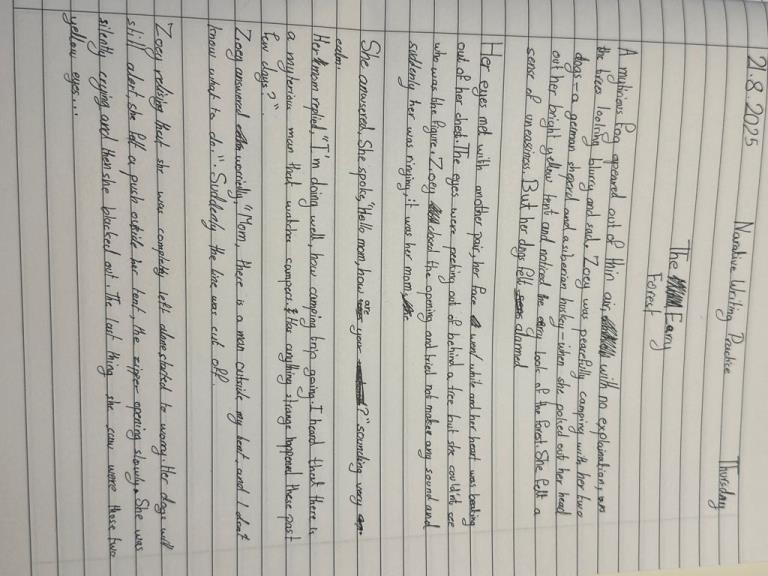 21.8.2025
Narative Writing Practice
Thursday
The Eary
Forest
A mytirious fog apeared out of thin air, with no explaination,
the trees looking blurry and sad. Zoey was peacefully camping with her two
dogs-a german sheperd and a siberian husky-when she poked out her head
out her bright yellow tent and noticed the eary look of the forest. She felt a
sense of uneasiness. But her dogs felt alarmed
Her eyes met with another pair, her face went white and her heart was beating
out of her chest. The eyes were peeking out of behind a tree but she could'nt see
who was the figure. Zoey closed the opening and tried not make any sound and
suddenly her was ringing, it was her mom.
She answered, She spoke, "Hello mom, how are your ?" sounding very
calm.
Her mom replied, "I'm doing well, how camping trip going. I heard that there is
a myterious man that watches campers. Has anything strange happened these past
few days?".
Zoey answered worriedly, "Mom, there is a man outside my tent, and I don't
know what to do.". Suddenly the line was cut off.
Zoey relising that she was completely left alone, started to worry. Her dogs well
still alert she felt a push outside her tent, the zipper opening slowly. She was
silently crying and then she blacked out. The last thing she saw were those two
yellow eyes...